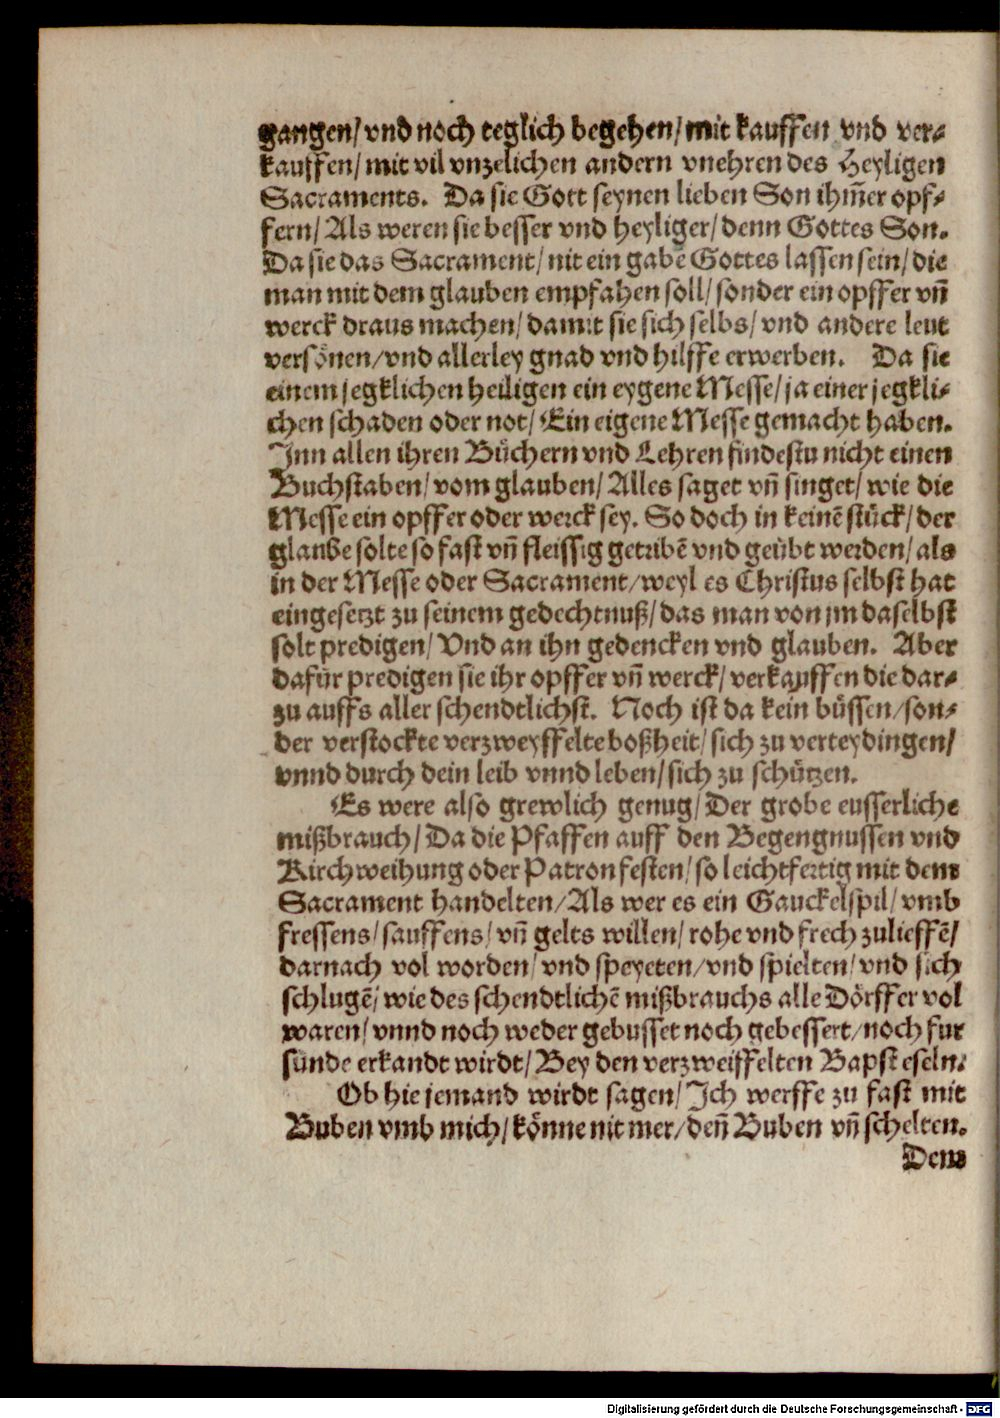 gangen/ vnd noch teglich begehen/ mit kauffen vnd ver-
kauffen/ mit vil vnzelichen andern vnehren des Heyligen
Sacraments. Da sie Gott seynen lieben Son ihm̃er opf-
fern/ Als weren sie besser vnd heyliger/ denn Gottes Son.
Da sie das Sacrament/ nit ein gabe Gottes lassen sein/ die
man mit dem glauben empfahen soll/ sonder ein opffer vñ
werck draus machen/ damit sie sich selbs/ vnd andere leut
versönen/ vnd allerley gnad vnd hilffe erwerben. Da sie
einem jegklichen heiligen ein eygene Messe/ ja einer jegkli-
chen schaden oder not/ Ein eigene Messe gemacht haben.
Inn allen ihren Büchern vnd Lehren findestu nicht einen
Buchstaben/ vom glauben/ Alles saget vñ singet/ wie die
Messe ein opffer oder werck sey. So doch in keinẽ stück/ der
glaube solte so fast vñ fleissig getribẽ vnd geübt werden/ als
in der Messe oder Sacrament/ weyl es Christus selbst hat
eingesetzt zu seinem gedechtnuß/ das man von jm daselbst
solt predigen/ Vnd an ihn gedencken vnd glauben. Aber
dafür predigen sie ihr opffer vñ werck/ verkauffen die dar-
zu auffs aller schendtlichst. Noch ist da kein büssen/ son-
der verstockte verzweyffelte boßheit/ sich zu verteydingen/
vnnd durch dein leib vnnd leben/ sich zu schützen.
Es were also grewlich genug/ Der grobe eusserliche
mißbrauch/ Da die Pfaffen auff den Begengnussen vnd
Kirchweihung oder Patronfesten/ so leichtfertig mit dem
Sacrament handelten/ Als wer es ein Gauckelspil/ vmb
fressens/ sauffens/ vñ gelts willen/ rohe vnd frech zulieffẽ/
darnach vol worden/ vnd speyeten/ vnd spielten/ vnd sich
schlugẽ/ wie des schendtlichẽ mißbrauchs alle Dörffer vol
waren/ vnnd noch weder gebusset noch gebessert/ noch fur
sünde erkandt wirdt/ Bey den verzweiffelten Bapst eseln.
Ob hie jemand wirdt sagen/ Ich werffe zu fast mit
Buben vmb mich/ könne nit mer/ deñ Buben vñ schelten.
Dem
Digitalisierung gefördert durch die Deutsche Forschungsgemeinschaft - DFG